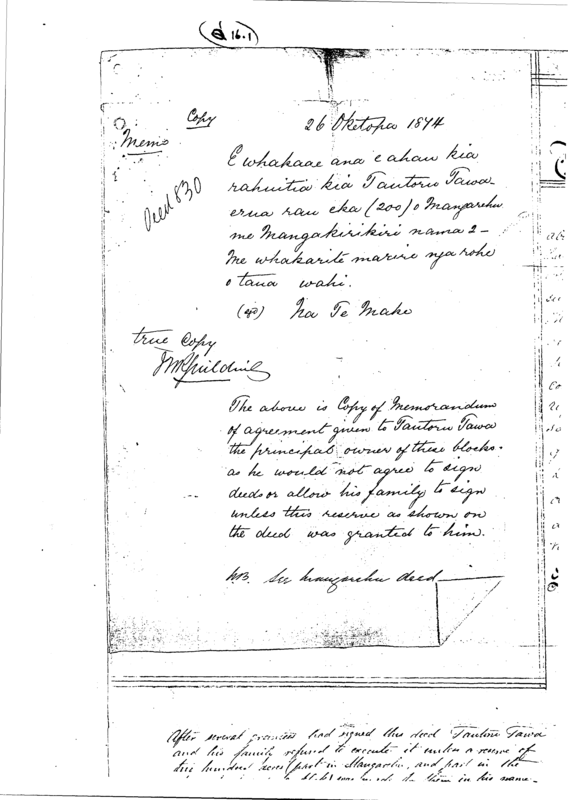 16.1
Copy
26 Oketopa 1874
Memo
Deed 830
E whakaae ana e ahau kia
rahuitia kia Tautoru Tawa-
erua rau eka (200) o Mangarehu
me Mangakirikiri nama 2-
Me whakarite mariri nga rohe
o taua wahi.
Na Te Make
true Copy
The above is Copy of Memorandum
of agreement given to Tautoru Tawa
the principal owner of these blocks.
as he would not agree to sign
deeds or allow his family to sign
unless this reserve as shown on
the deed was granted to him.
NB. See Mangarehu deed
After several grantees had signed this deed Tawa
and his family refused to execute it unless a reserve of
hundred acres (part in and part in the
in his name.